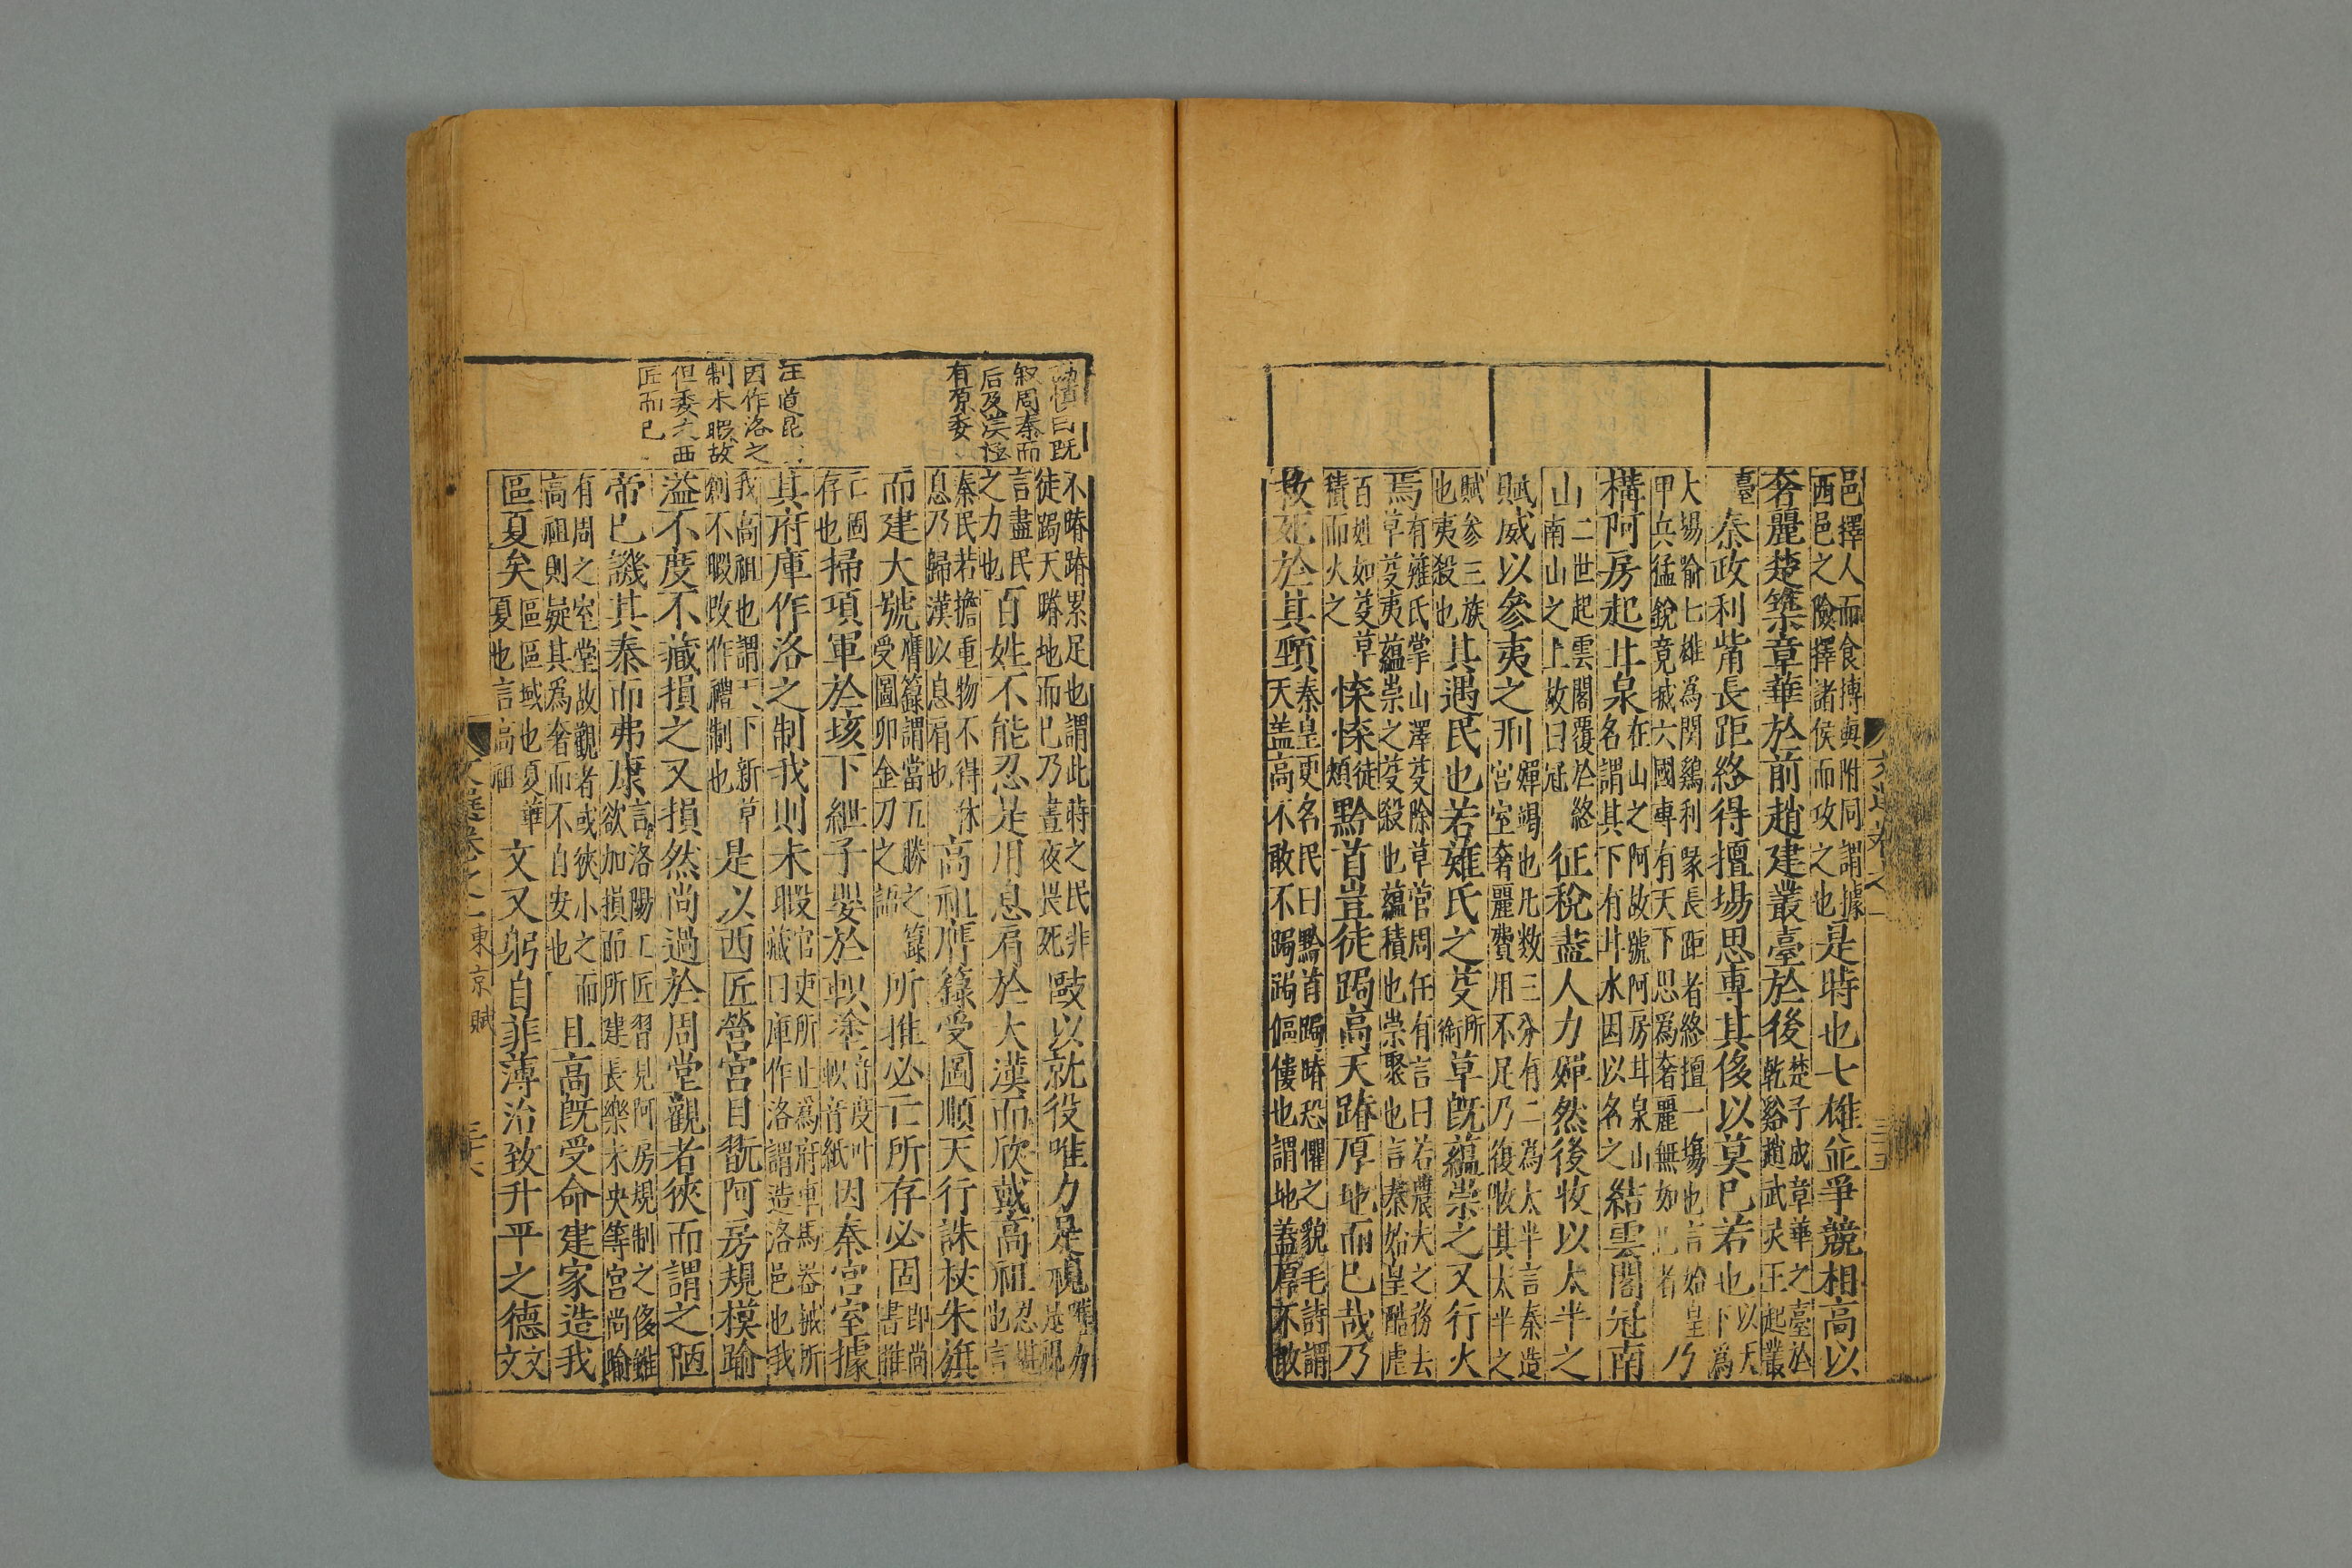 邑擇人而食搏與附同謂據
西邑之險擇諸侯而攻之也
是時也七雄並爭競相高以
奢麗楚築章華於前趙建叢臺於後
楚子成章華之臺於
乾谿趙武灵王起叢
臺
秦政利觜長距終得擅場思專其侈以莫已若也
以天
下爲
大場喻七雄爲閗鷄利喙長距者終擅一場也言始皇
甲兵猛銳竟㓕六國専有天下思爲奢麗無如已者
乃
構阿房起甘泉
在山之阿故號阿房耳泉山
名謂其下有甘水因以名之
結雲閣冠南
山
二世起雲閣覆於終
南山之上故曰冠
征稅盡人力殫然後收以太半之
賦威以參夷之刑
殫竭也凡数三分有二爲太半言秦造
宮室奢麗費用不足乃復收其太半之
賦参三族
也夷殺也
其遇民也若薙氏之芟
所
銜
草旣蘊崇之又行火
焉
有薙氏掌山澤芟除草菅周任有言曰若農夫之務去
草芟夷蘊崇之芟殺也蘊積也崇聚也言秦始皇酷虐
百姓如芟草
積而火之
慄慄
徒
頰
黔首豈徒跼高天蹐厚地而已哉乃
救死於其頸
秦皇更名民曰黔首跼蹐恐懼之貌毛詩謂
天盖高不敢不跼跼傴僂也謂地蓋厚不敢
不蹐蹐累足也謂此時之民非
徒跼天蹐地而已乃晝夜畏死
敺以就役唯力是視
唯力
是視
言盡民
之力也
百姓不能忍是用息肩於大漢而欣戴高祖
忍堪
也言
秦民若擔重物不得休
息乃歸漢以息肩也
高祖膺籙受圖順天行誅杖朱旗
而建大號
膺籙謂當五勝之籙
受圖卯金刀之語
所推必亡所存必固
即尚
書推
亡固
存也
掃項軍於垓下紲子嬰於軹塗
音度叶
軹音紙
因秦宮室據
其府庫作洛之制我則未暇
官吏所止爲府車馬器械所
藏曰庫作洛謂造洛邑也我
我高祖也謂天下新草
創不暇改作禮制也
是以西匠營宮目翫阿房規模踰
溢不度不藏損之又損然尚過於周堂觀者狹而謂之陋
帝已譏其泰而弗康
言洛陽工匠習見阿房規制之侈雖
欲加損而所建長樂未央等宮尚踰
有周之室堂故觀者或狹小之而
高祖則疑其爲奢而不自安也
且高旣受命建家造我
區夏矣
區區域也夏華
夏也言高祖
文又躬自菲薄治致升平之德
文
文
文選卷之二
東京賦
三十六
慎曰旣
叙周秦而
后及漢極
有原委
汪道昆
因作洛之
制未暇故
但委之西
匠而已